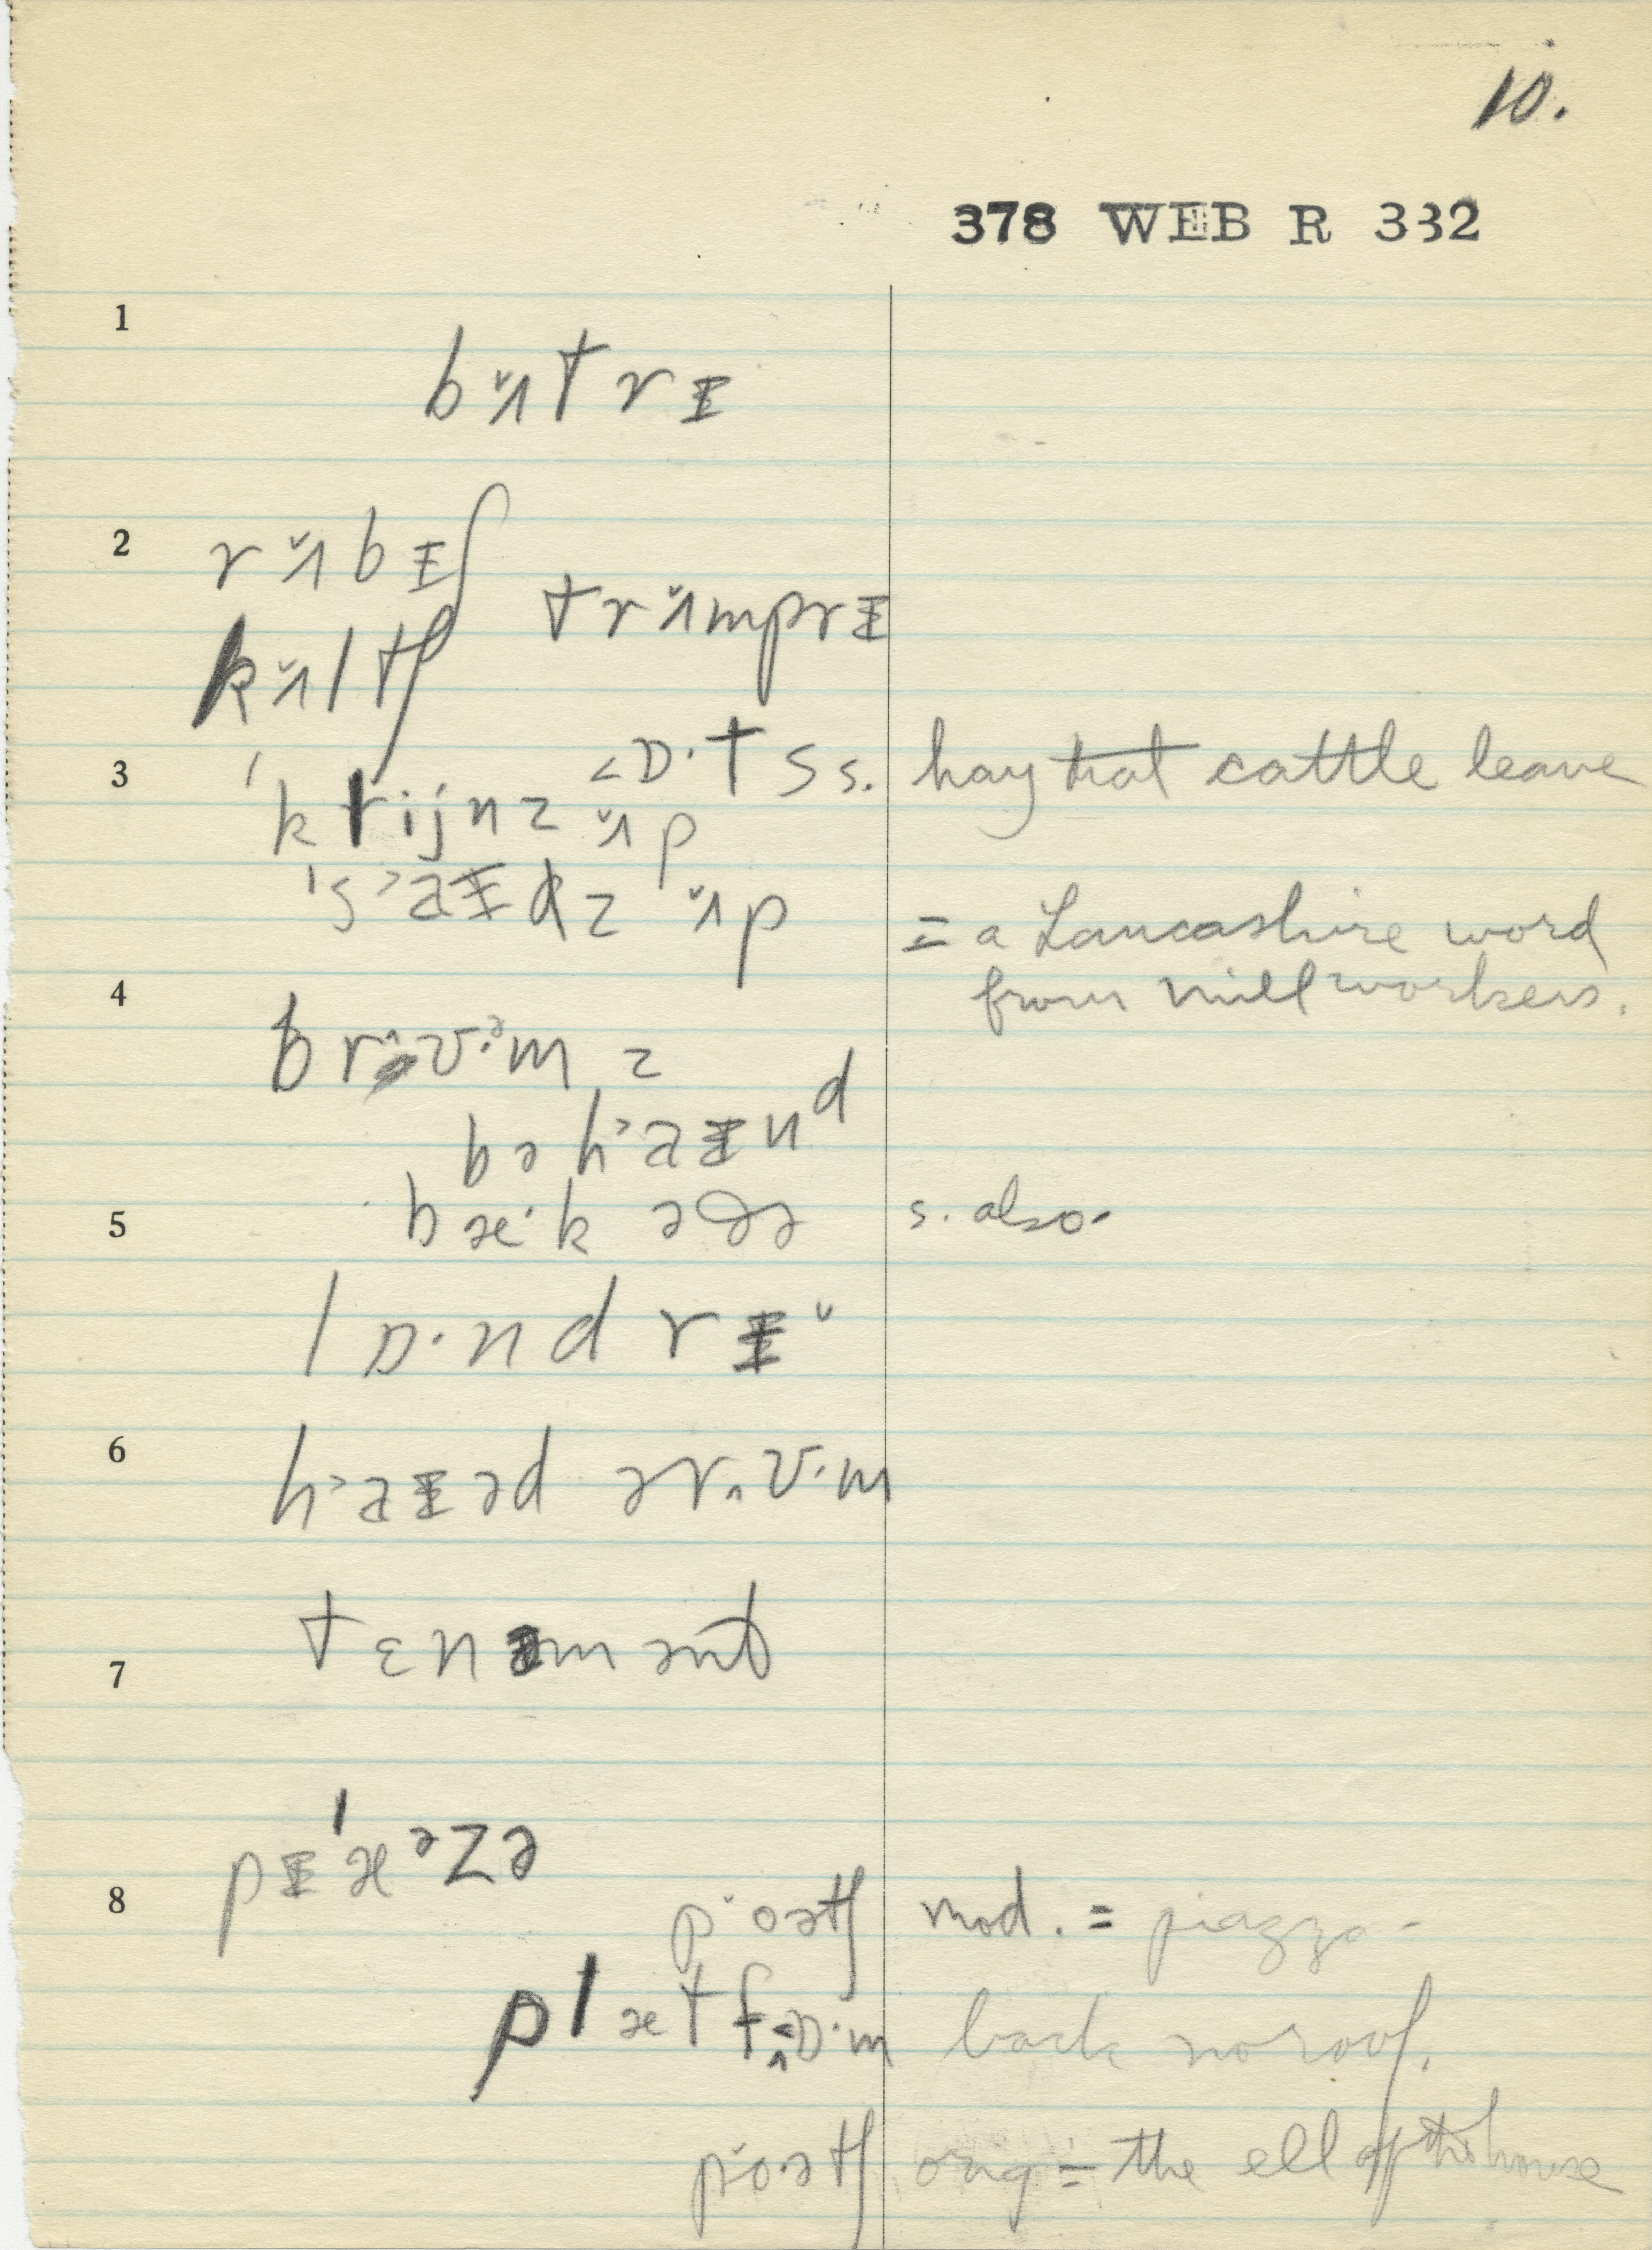 10.
378 WEB R 332
1
bʌ̆trɪ
2
rʌ̆bɪʃ
trʌ̆mprɪ
kʌ̆ltʃ
3
<ɒ·ts s. hay that cattle leave
'k rijnz ʌ̆p
's>aɪdz ʌ̆p
= a Lancashire word
from mill workers.
4
br^ʊ·ᵊm z
bə h>aɪnᵈ
5
bæ·k əðə s. also.
lɒ·nd rɪ˘
6
h>aɪəd ər^ʊ·m
7
tɛnəmənt
pɪ'æᵊzə
8
p˘oətʃ mod. = piazza -
plætf<ɒ·m back no roof.
p˘o·ətʃ orig = the ell of the house